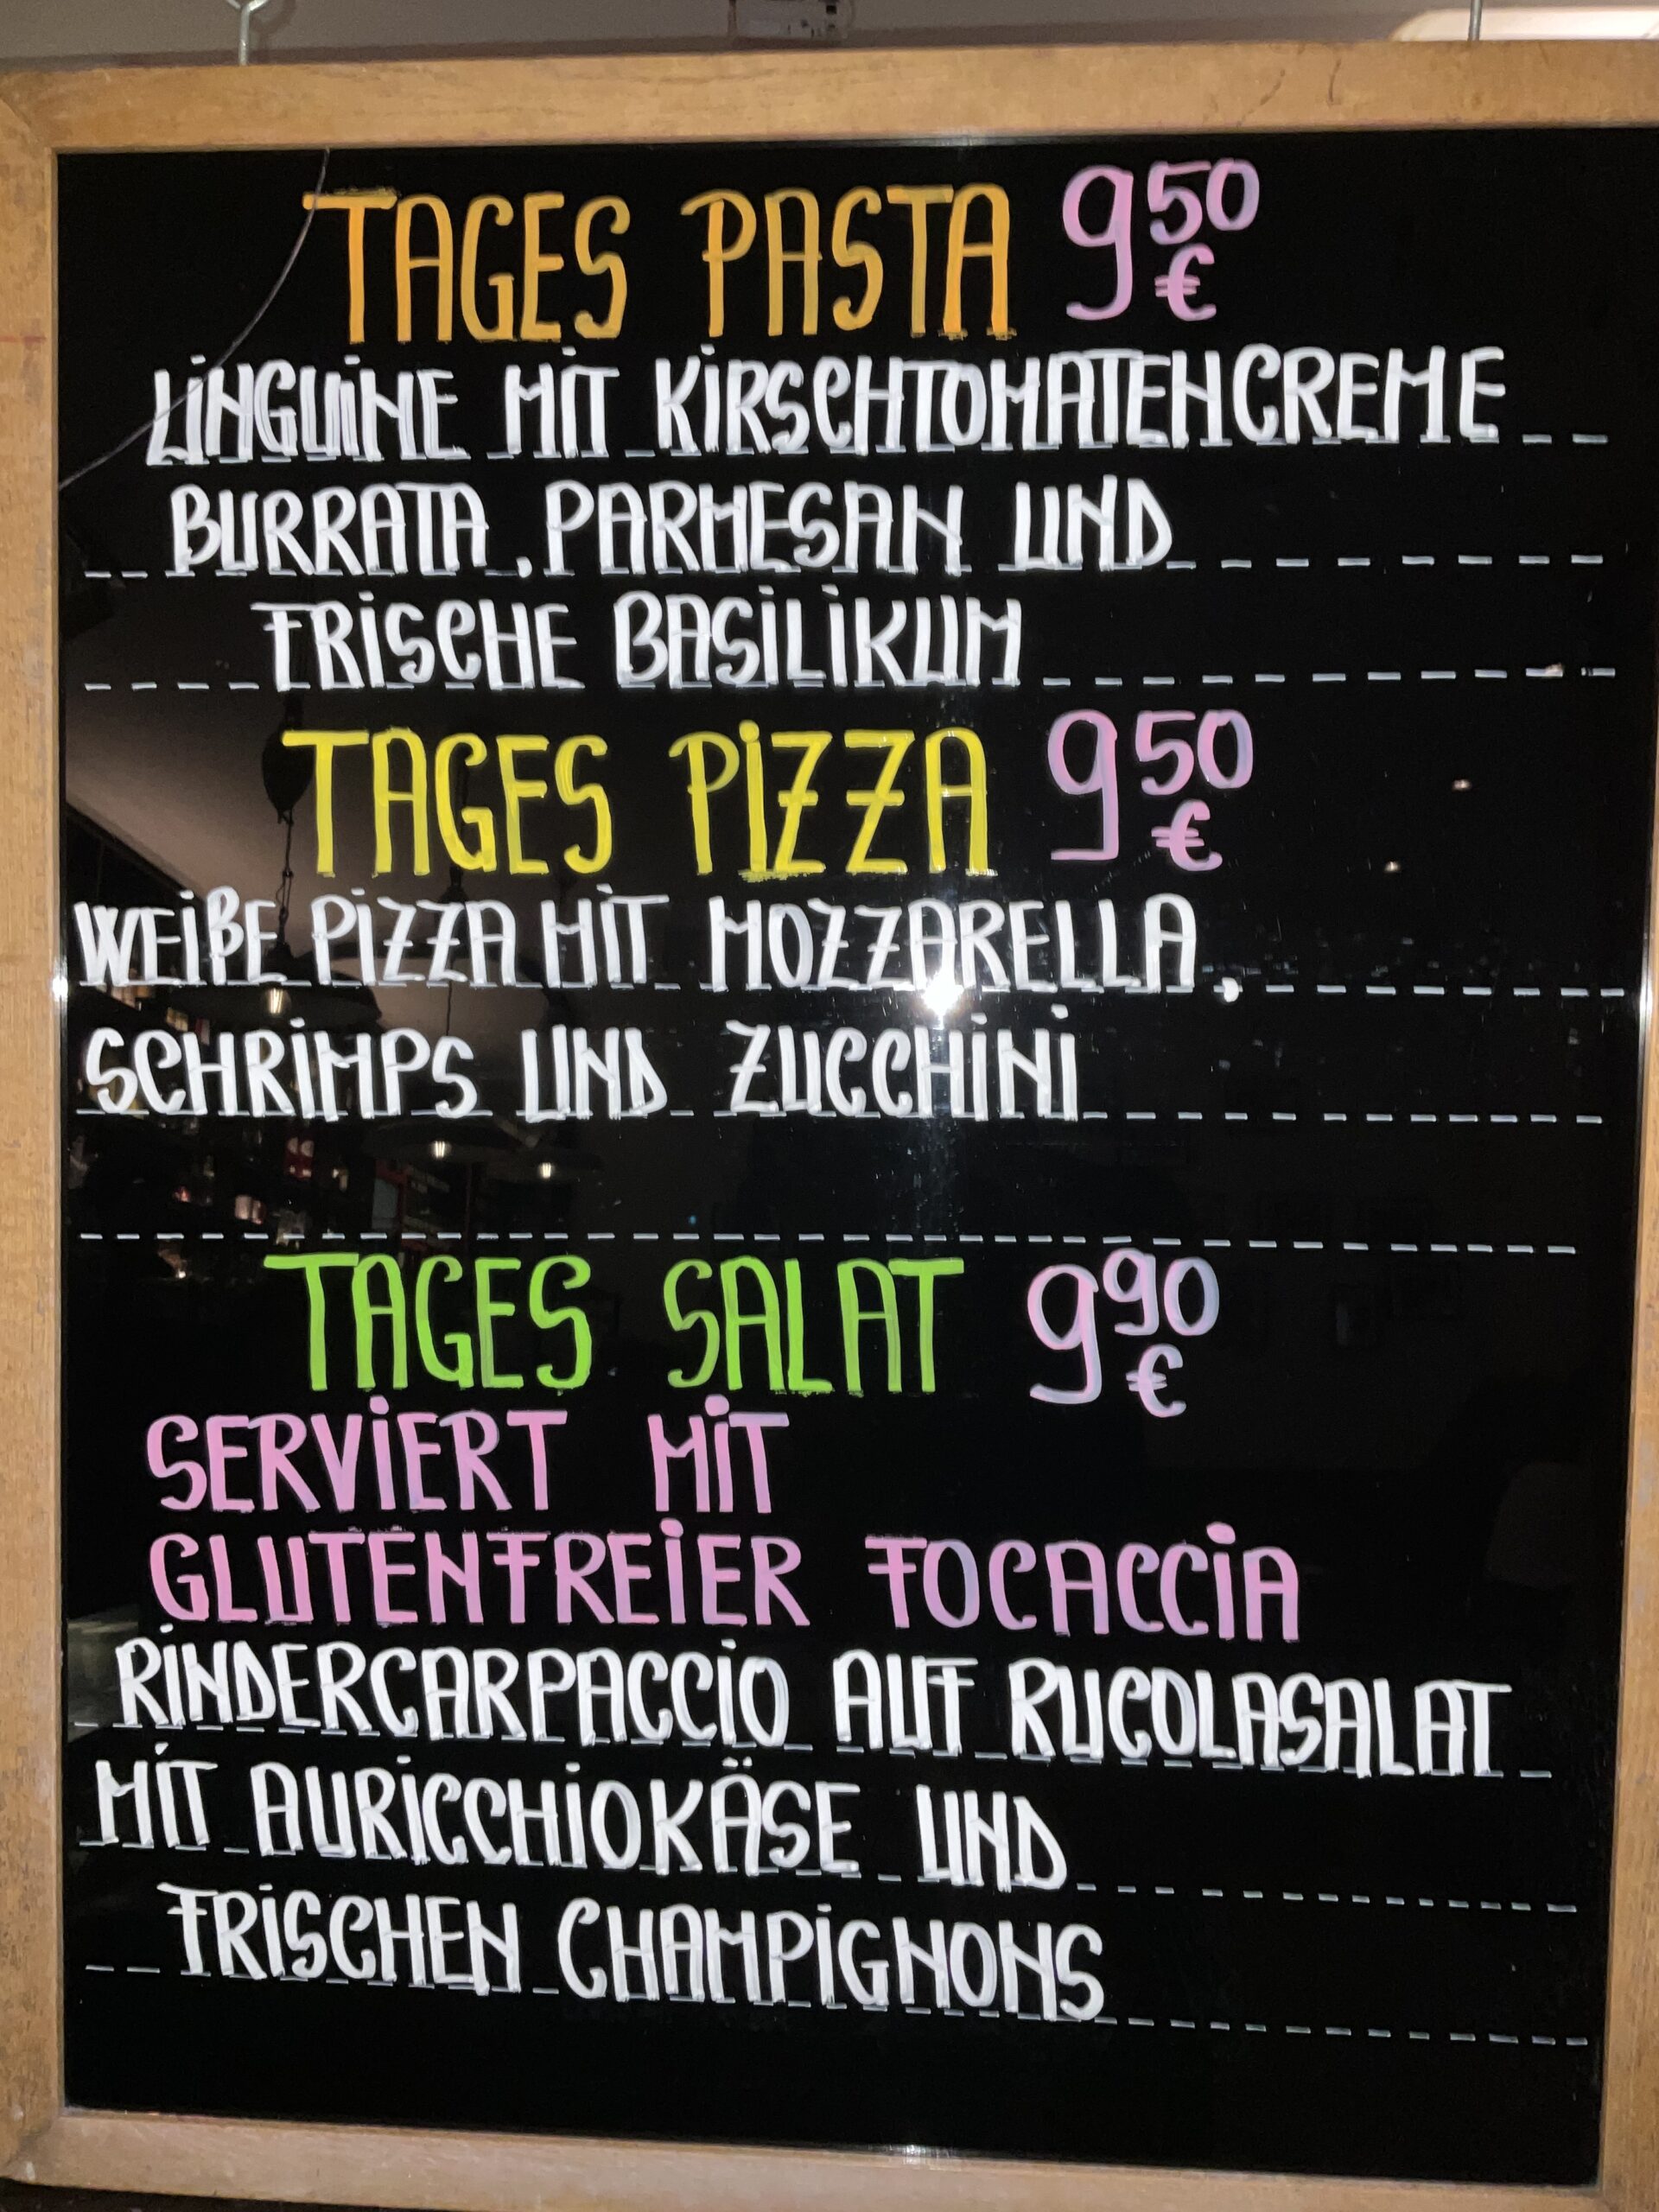 TAGES PASTA 9 50 €
LINGUINE MIT KIRSCHTOMATENCREME
BURRATA, PARMESAN UND
FRISCHE BASILIKUM
TAGES PIZZA 9 50 €
WEIßE PIZZA MIT MOZZARELLA,
SCHRIMPS UND ZUCCHINI
TAGES SALAT 9 90 €
SERVIERT MIT
GLUTENFREIER FOCACCIA
RINDERCARPACCIO AUF RUCOLASALAT
MIT AURICCHIOKÄSE UND
FRISCHEN CHAMPIGNONS